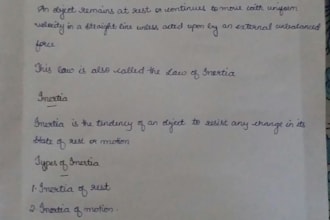 An object remains at rest or continues to move with uniform
velocity in a straight line unless acted upon by an external unbalanced
force
This law is also called the Law of Inertia
Inertia
Inertia is the tendency of an object to resist any change in its
state of rest or motion
Types of Inertia
1. Inertia of rest
2. Inertia of motion